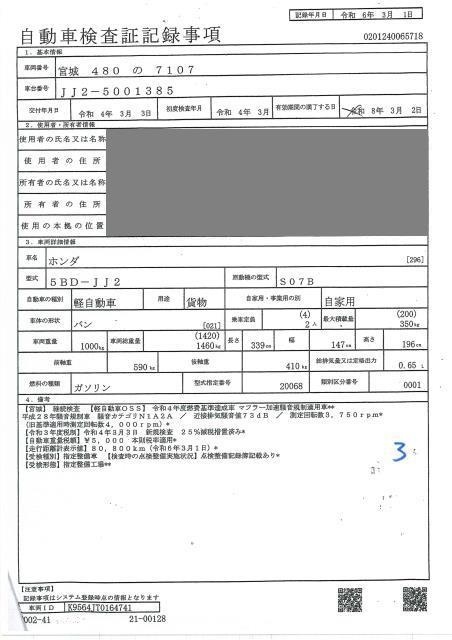 記録年月日 令和 6年 3月 1日
自動車検査証記録事項
0201240065718
1. 基本情報
車両番号 宮城 480 の 7107
車台番号 JJ2-5001385
交付年月日 令和 4年 3月 3日 初度検査年月 令和 4年 3月 有効期間の満了する日 令和 8年 3月 2日
2. 使用者・所有者情報
使用者の氏名又は名称
使用者の住所
所有者の氏名又は名称
所有者の住所
使用の本拠の位置
3. 車両詳細情報
車名 ホンダ [296]
型式 5BD-JJ2 原動機の型式 S07B
自動車の種別 軽自動車 用途 貨物 自家用・事業用の別 自家用
車体の形状 バン [021] 乗車定員 (4) 2人 最大積載量 (200) 350kg
車両重量 1000kg 車両総重量 (1420) 1460kg 長さ 339cm 幅 147cm 高さ 196cm
前軸重 590kg 後軸重 410kg 総排気量又は定格出力 0.65 L
燃料の種類 ガソリン 型式指定番号 20068 類別区分番号 0001
4. 備考
【宮城】 継続検査 【軽自動車OSS】 令和4年度燃費基準達成車 マフラー加速騒音規制適用車**
平成28年騒音規制車 騒音カテゴリN1A2A / 近接排気騒音値73dB / 測定回転数3,750rpm*
(旧基準適用時測定回転数4,000rpm)*
【令和3年度税制】令和4年3月3日 新規検査 25%減税措置済み*
【自動車重量税額】¥5,000 本則税率適用*
【走行距離計表示値】80,800km(令和6年3月1日)*
【受検種別】指定整備車 【検査時の点検整備実施状況】点検整備記録簿記載あり*
【受検形態】指定整備工場**
3
【注意事項】
記録事項はシステム登録時点の情報となります
車両ID K9564JT0164741
7002-41 21-00128